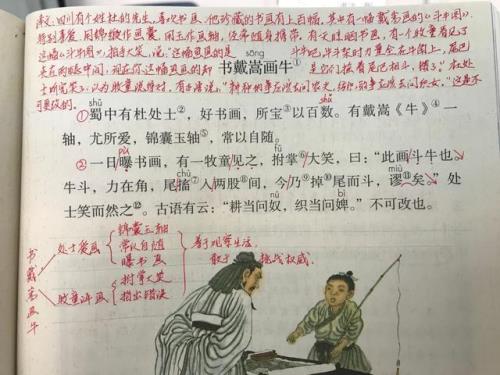 译文:四川有个姓杜的先生,喜欢书画,他珍藏的书画有上百幅,其中有一幅戴嵩画的《斗牛图》,
特别喜爱,用锦缎作画囊,用玉作画轴,经常随身携带,有一天晒书画,有一个牧童看见了
这幅《斗牛图》,拍手大笑,说:“这幅画画的是 斗牛吧,斗牛时力量全在牛角上,尾巴
sōng
书戴嵩画牛①
夹在两腿中间,现在你这幅画画的却 是它们摇着尾巴相斗,错了”杜处
士听完笑了,认为牧童说得对,
可更改的。
shǔ shǔ
①蜀中有杜处士②,好书画,所宝③以百数。有戴嵩《牛》④一
轴,尤所爱,锦囊玉轴⑤,常以自随。
pù fǔ
②一日曝书画,有一牧童见之,拊掌⑥大笑,曰:“此画斗牛也。
chù nǎi miù
牛斗,力在角,尾搐⑦入两股⑧间,今乃⑨掉⑩尾而斗,谬⑪矣。”处
nú bì
士笑而然之⑫。古语有云:“耕当问奴,织当问婢。”不可改也。
书戴嵩画牛
处士爱画
锦囊玉轴
常以自随
曝书画
牧童评画
拊掌大笑
指出错误
善于观察生活,
敢于挑战权威。